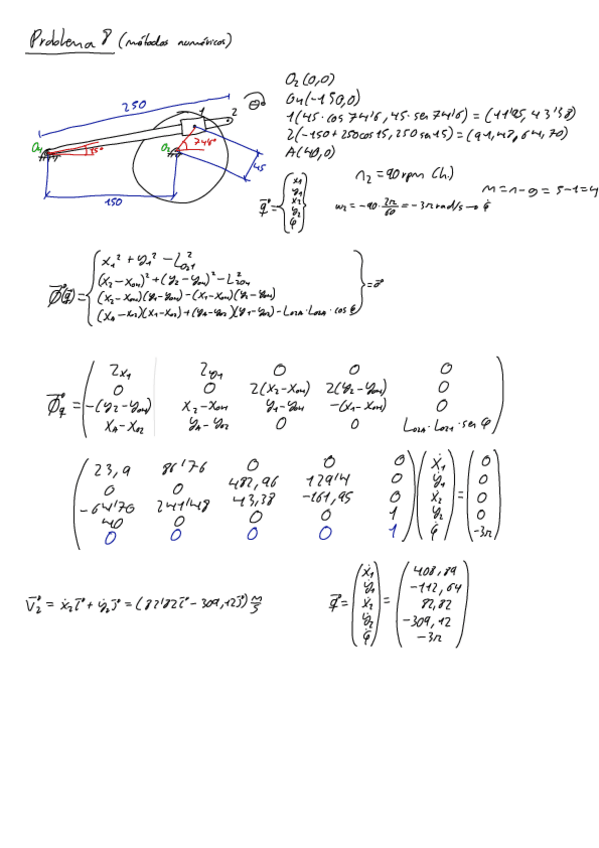 Problema 8 (métodos numéricos)
250
1
2
O₄
15°
O₂
74'8°
45
150
O₂(0,0)
O₄(-150,0)
1(45·cos 74'6, 45·sen 74'6) = (11'95, 43'38)
2(-150+250cos15, 250sen15) = (91,48, 64,70)
A(40,0)
q⃗ = { x₁ y₁ x₂ y₂ φ }
n₂ = 90 rpm (h.)
m = n - g = 5-1 = 4
ω₂ = -90·2π/60 = -3π rad/s → φ̇
Φ⃗(q⃗) = { x₁² + y₁² - L²O₂1
(x₂-xO₄)² + (y₂-yO₄)² - L²2O₄
(x₂-xO₄)(y₁-yO₄) - (x₁-xO₄)(y₂-yO₄)
(xA-xO₂)(x₁-xO₂) + (yA-yO₂)(y₁-yO₂) - LO2A·LO2A·cos φ } = 0⃗
Φ⃗q = ( 2x₁ 2y₁ 0 0 0
0 0 2(x₂-xO₄) 2(y₂-yO₄) 0
-(y₂-yO₄) x₂-xO₄ y₁-yO₄ -(x₁-xO₄) 0
xA-xO₂ yA-yO₂ 0 0 LO2A·LO21·sen φ )
( 23,9 86'76 0 0 0 ) ( ẋ₁ ) = ( 0 )
0 0 482,96 129'4 0 ẏ₁ 0
-64'70 241'48 43,38 -161,95 0 ẋ₂ 0
40 0 0 0 1 ẏ₂ 0
0 0 0 0 1 φ̇ -3π
V⃗₂ = ẋ₂ i⃗ + ẏ₂ j⃗ = (82'82 i⃗ - 309,12 j⃗) m/s
q̇⃗ = ( ẋ₁ ẏ₁ ẋ₂ ẏ₂ φ̇ ) = ( 408,89
-112,64
82,82
-309,12
-3π )